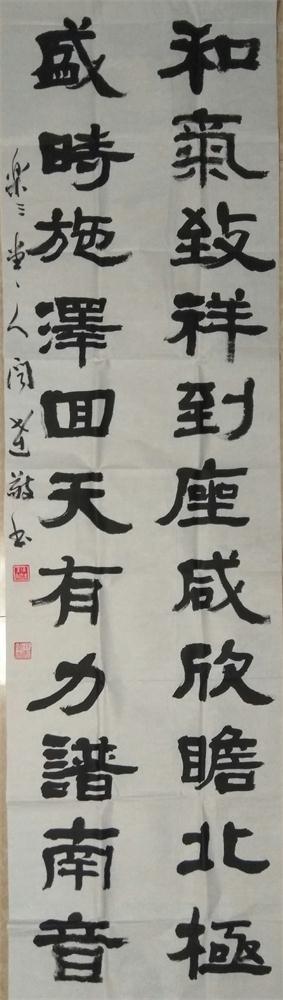 和氣致祥到座咸欣瞻北極
盛時施澤回天有力譜南音
堂人敬书